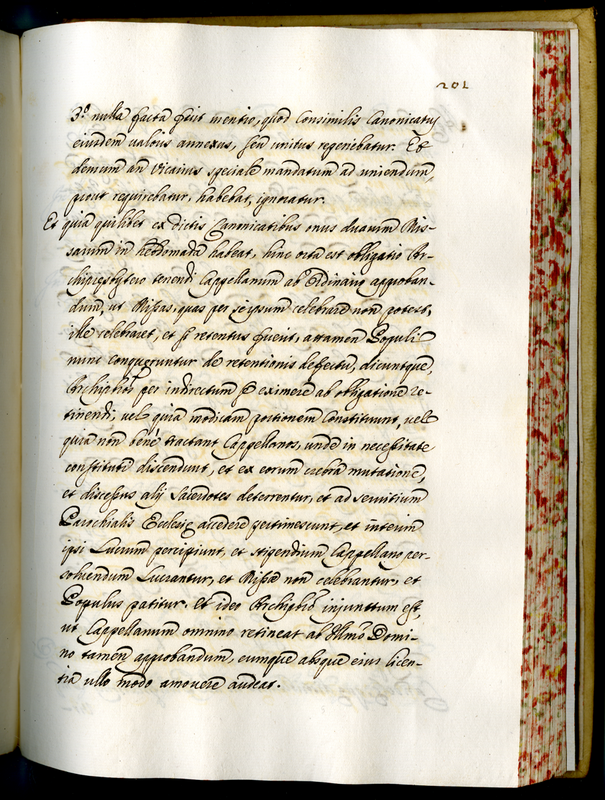 201
3.º nulla facta fuit mentio, quod Consimilis Canonicatus
eiusdem valoris annexus, seu unitus reperiebatur. Et
demum an Vicarius speciale mandatum ad uniendum,
prout requirebatur, habebat, ignoratur.
Et quia quilibet ex dictis Canonicatibus onus duarum Mis-
sarum in hebdomada habeat, hinc orta est obligatio Ar-
chipresbytero tenendi Cappellanum ab Ordinario approban-
dum, ut Missas, quas per seipsum celebrare non potest,
ille celebraret, et si retentus fuerit, attamen Populi
nunc conqueruntur de retentionis defectu, dicuntque,
Archipbros per indirectum se eximere ab obligatione re-
tinendi, vel quia modicam portionem Constituunt, vel
quia non bene tractant Cappellanos, unde in necessitate
constituti discendunt, et ex eorum crebra mutatione,
et discessus alij Sacerdotes deterrentur, et ad servitium
Parochialis Ecclesię accedere pertimescunt, et interim
ipsi Lucrum percipiunt, et stipendium Cappellano per-
solvendum Lucrantur, et Missę non celebrantur, et
Populus patitur. Et ideo Archipbro injunctum est,
ut Cappellanum omnino retineat ab Illmo Domi-
no tamen approbandum, eumque absque eius licen-
tia ullo modo amovere audeat.